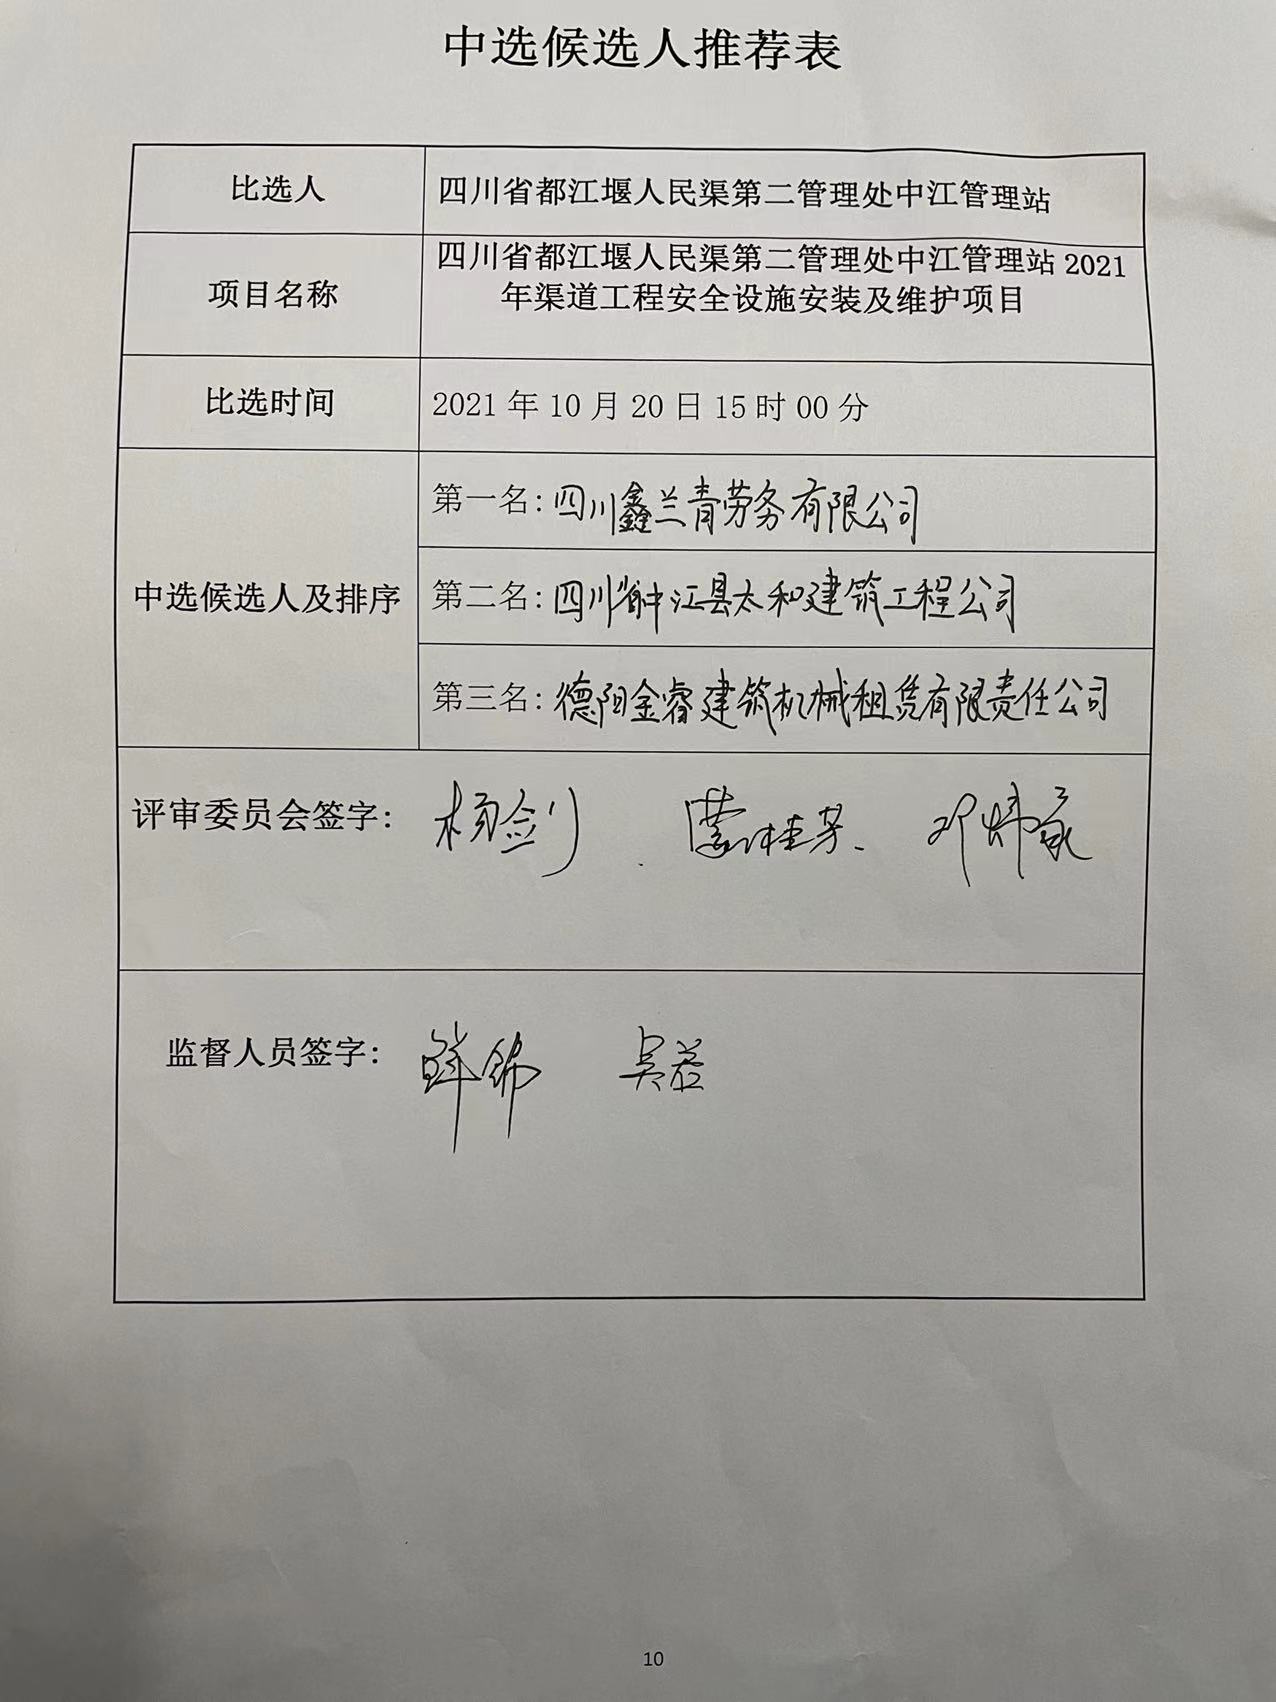 中选候选人推荐表
比选人
四川省都江堰人民渠第二管理处中江管理站
项目名称
四川省都江堰人民渠第二管理处中江管理站 2021
年渠道工程安全设施安装及维护项目
比选时间
2021 年 10 月 20 日 15 时 00 分
中选候选人及排序
第一名：四川鑫兰青劳务有限公司
第二名：四川省中江县太和建筑工程公司
第三名：德阳金睿建筑机械租赁有限责任公司
评审委员会签字： 杨剑
监督人员签字：
10